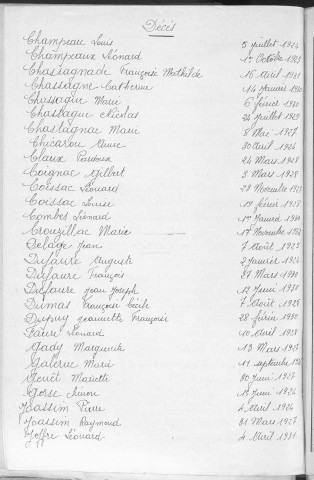 Décès
Champeau Louis 5 juillet 1924
Champeaux Léonard 1er Octobre 1923
Chassagnade Françoise Mathilde 16 Avril 1931
Chassagne Catherine 14 janvier 1930
Chassagne Marie 6 février 1930
Chassagne Nicolas 24 juillet 1929
Chastagnac Marie 8 Mai 1927
Chicarou 30 Avril 1924
Claux 24 Mars 1928
Coignac Gilbert 3 Mars 1928
Coissac Léonard 29 Novembre 1928
Coissac Louise 19 février 1928
Combes Léonard 1930
Crouzillac Marie 17 Novembre
Delage Jean 7 Août 1923
Dufaure Auguste 2 janvier 1924
Dufaure François 27 Mars 1930
Dufaure Jean Joseph 12 Juin 1930
Dumas Françoise Cécile 7 Août 1928
Dupuy Jeannette Françoise 28 février 1930
Faure Léonard 10 Avril 1928
Gady Marguerite 13 Mars 1927
Galerne Marie 11 septembre
Genet Mariette 30 Juin 1927
Gorse Simon 1er Juin 1924
Joassim Pierre 4 Avril 1924
Joassim Raymond 31 Mars 1927
Joffre Léonard 4 Avril 1931